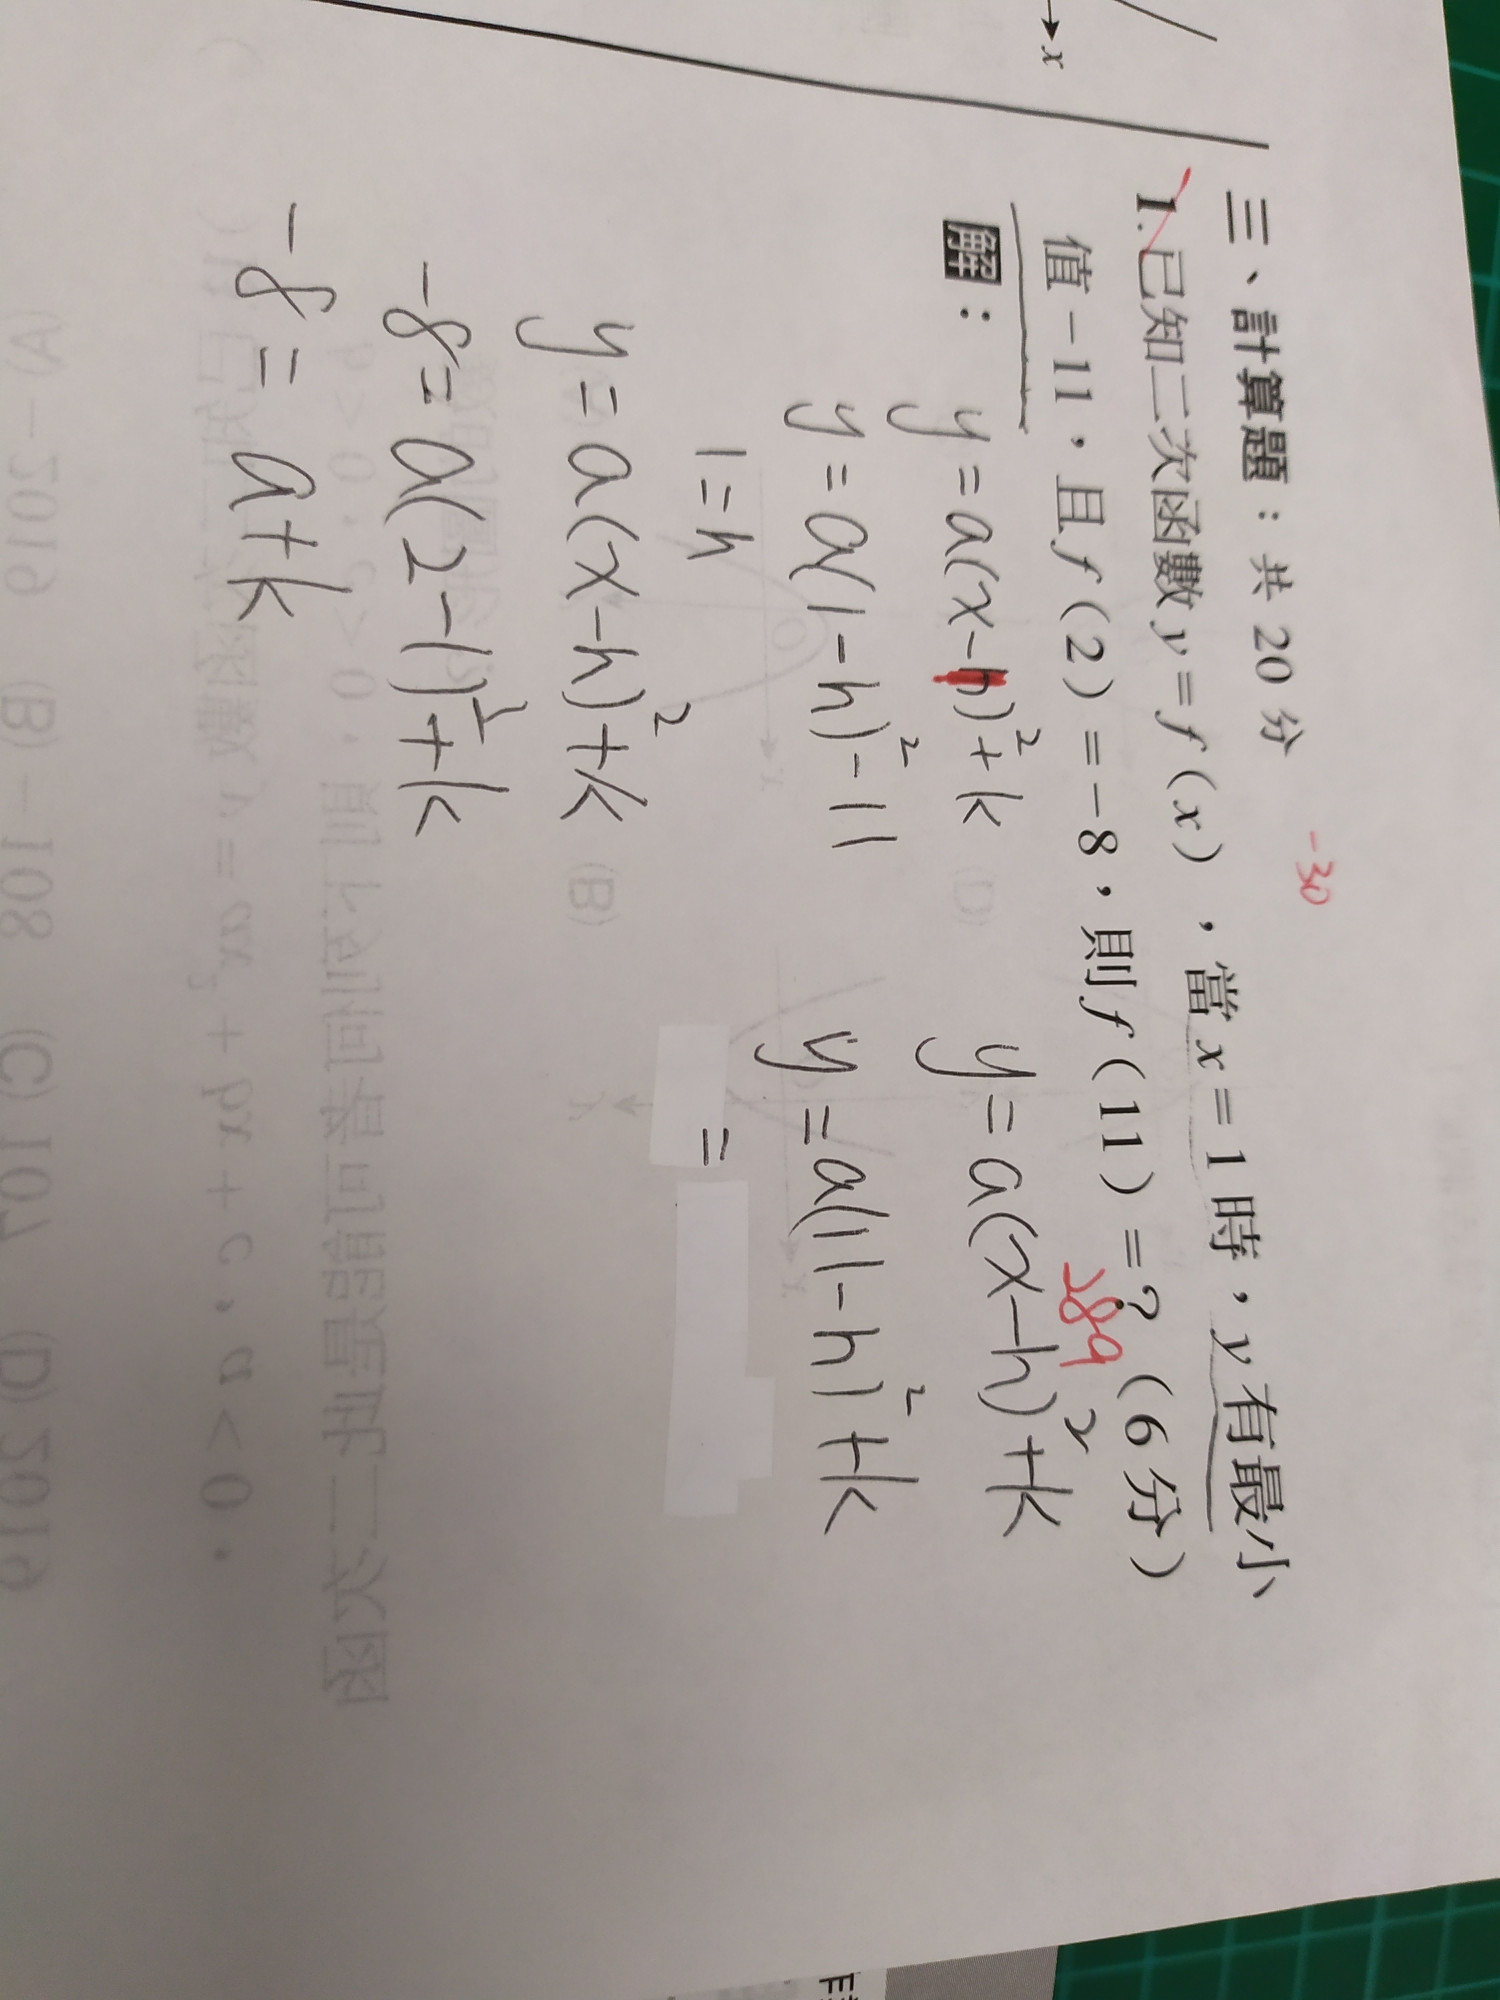 x
三、計算題：共 20 分
-30
1.已知二次函數 y = f ( x )，當 x = 1 時，y 有最小
值 -11，且 f ( 2 ) = -8，則 f ( 11 ) = ?（6 分）
289
解：
y = a(x-h)²+k
y = a(1-h)²-11
1=h
y = a(x-h)²+k
-8 = a(2-1)²+k
-8 = a+k
y = a(x-h)²+k
y = a(11-h)²+k
=